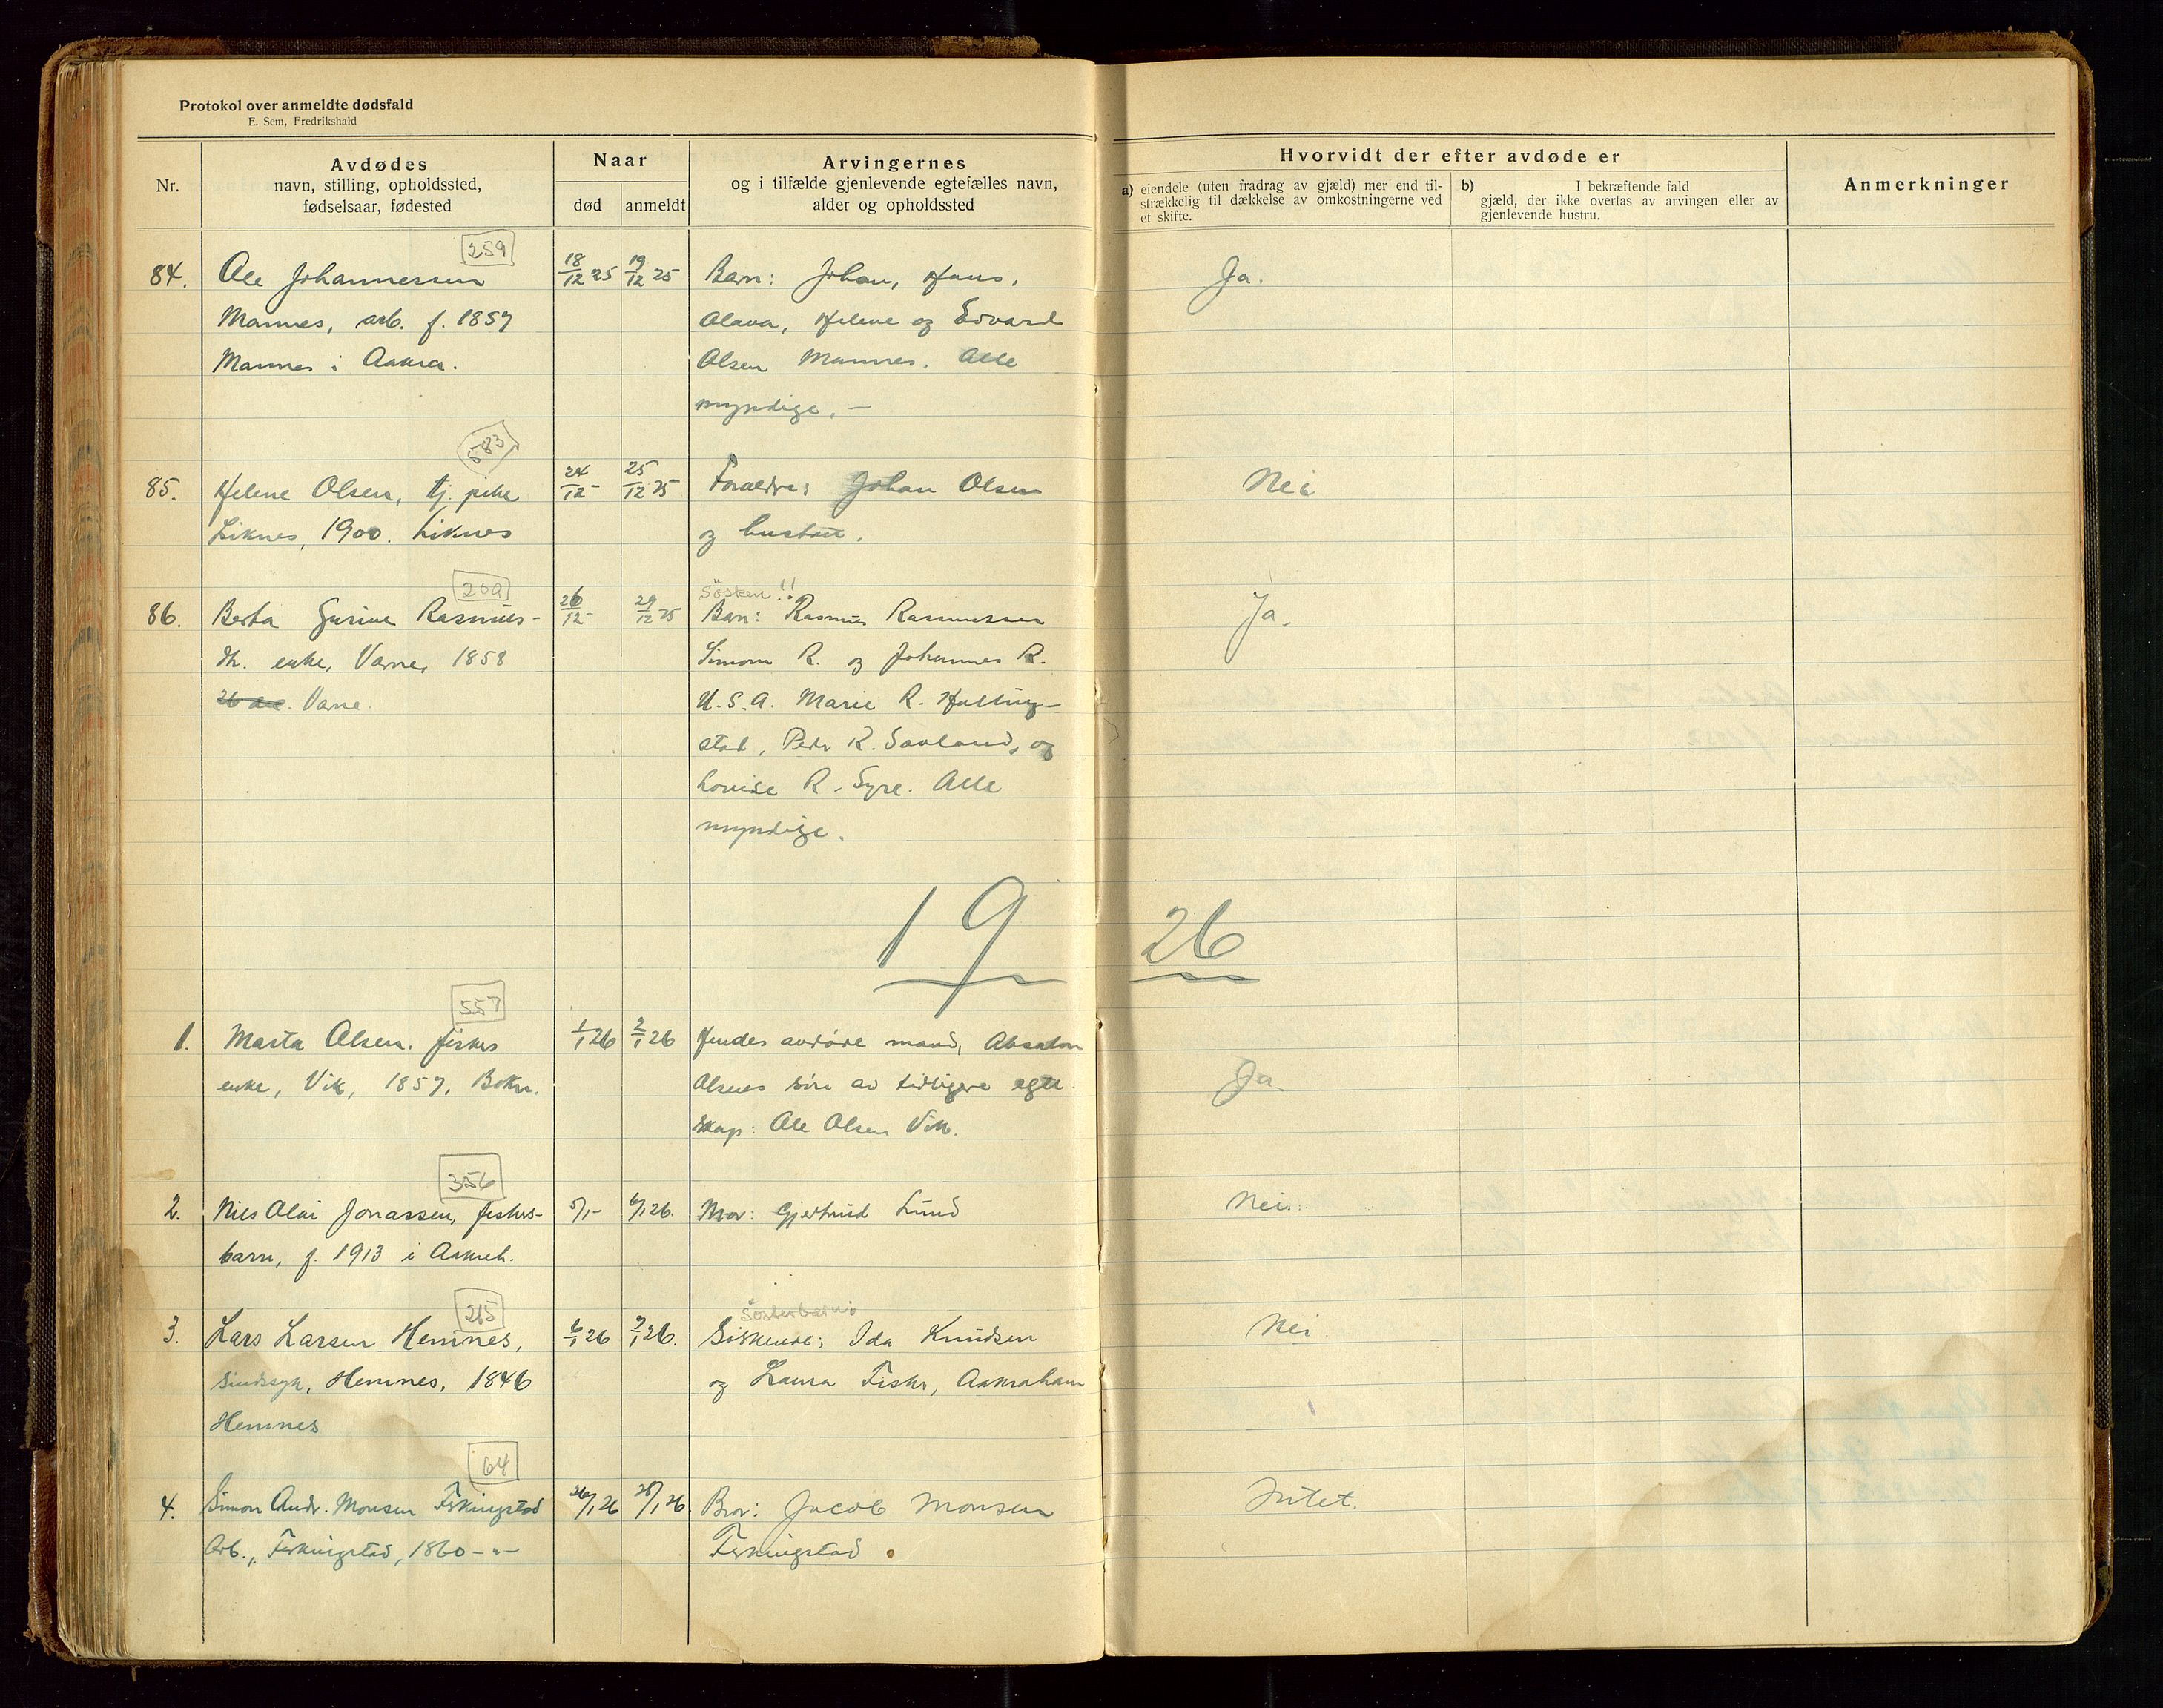 Protokol over anmeldte dødsfald
E. Sem, Fredrikshald
Nr.
Avdødes
navn, stilling, opholdssted,
fødselsaar, fødested
Naar
død
anmeldt
Arvingernes
og i tilfælde gjenlevende egtefælles navn,
alder og opholdssted
Hvorvidt der efter avdøde er
a) eiendele (uten fradrag av gjæld) mer end til-
strækkelig til dækkelse av omkostningerne ved
et skifte.
b) I bekræftende fald
gjæld, der ikke overtas av arvingen eller av
gjenlevende hustru.
Anmerkninger
259
84. Ole Johannessen 18/12 25 19/12 25 Barn: Johan, Hans, Ja.
Mannes, arb. f. 1857 Olava, Helene og Edvard
Mannes i Aakra. Olsen Mannes. Alle
myndige. —
583
85. Helene Olsen, tj. pike 24/12 - 25/12 25 Forældre: Johan Olsen Nei
Liknes, 1900. Liknes og hustru.
260
86. Berta Gurine Rasmus- 26/12 - 29/12 25 Søsken!! Ja.
Barn: Rasmus Rasmussen
dtr. enke, Varne, 1858 Simon R. og Johannes R.
Varne. U.S.A. Marie R.
stad, Peder R. Sævland, og
Lovise R. Syre. Alle
myndige.
19 26
557
1. Marta Olsen. fiskers 1/1 26 2/1 26 Hendes avdøde mand, Absalon
enke, Vik, 1857, Bokn. Olsens søn av tidligere egte Ja.
skap: Ole Olsen Vik.
356
2. Nils Olai Jonassen, fiskers- 5/1 - 6/1 26. Mor: Gjertrud Lund Nei.
barn, f. 1913 i Aakreh.
215
Søsterbarn:
3. Lars Larsen Hemnes, 6/1 26 7/1 26. Søskende: Ida Knudsen Nei.
sindssyk, Hemnes, 1846 og Laura Fisker, Aakrahavn
Hemnes
64
4. Simon Andr. Monsen Ferkingstad 26/1 26 28/1 26. Bror: Jacob Monsen Intet.
Arb., Ferkingstad, 1860 - " - Ferkingstad.